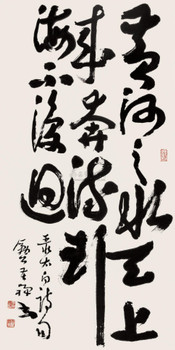 黄河之水天上
来奔流到
海不復迴
录太白詩句
书